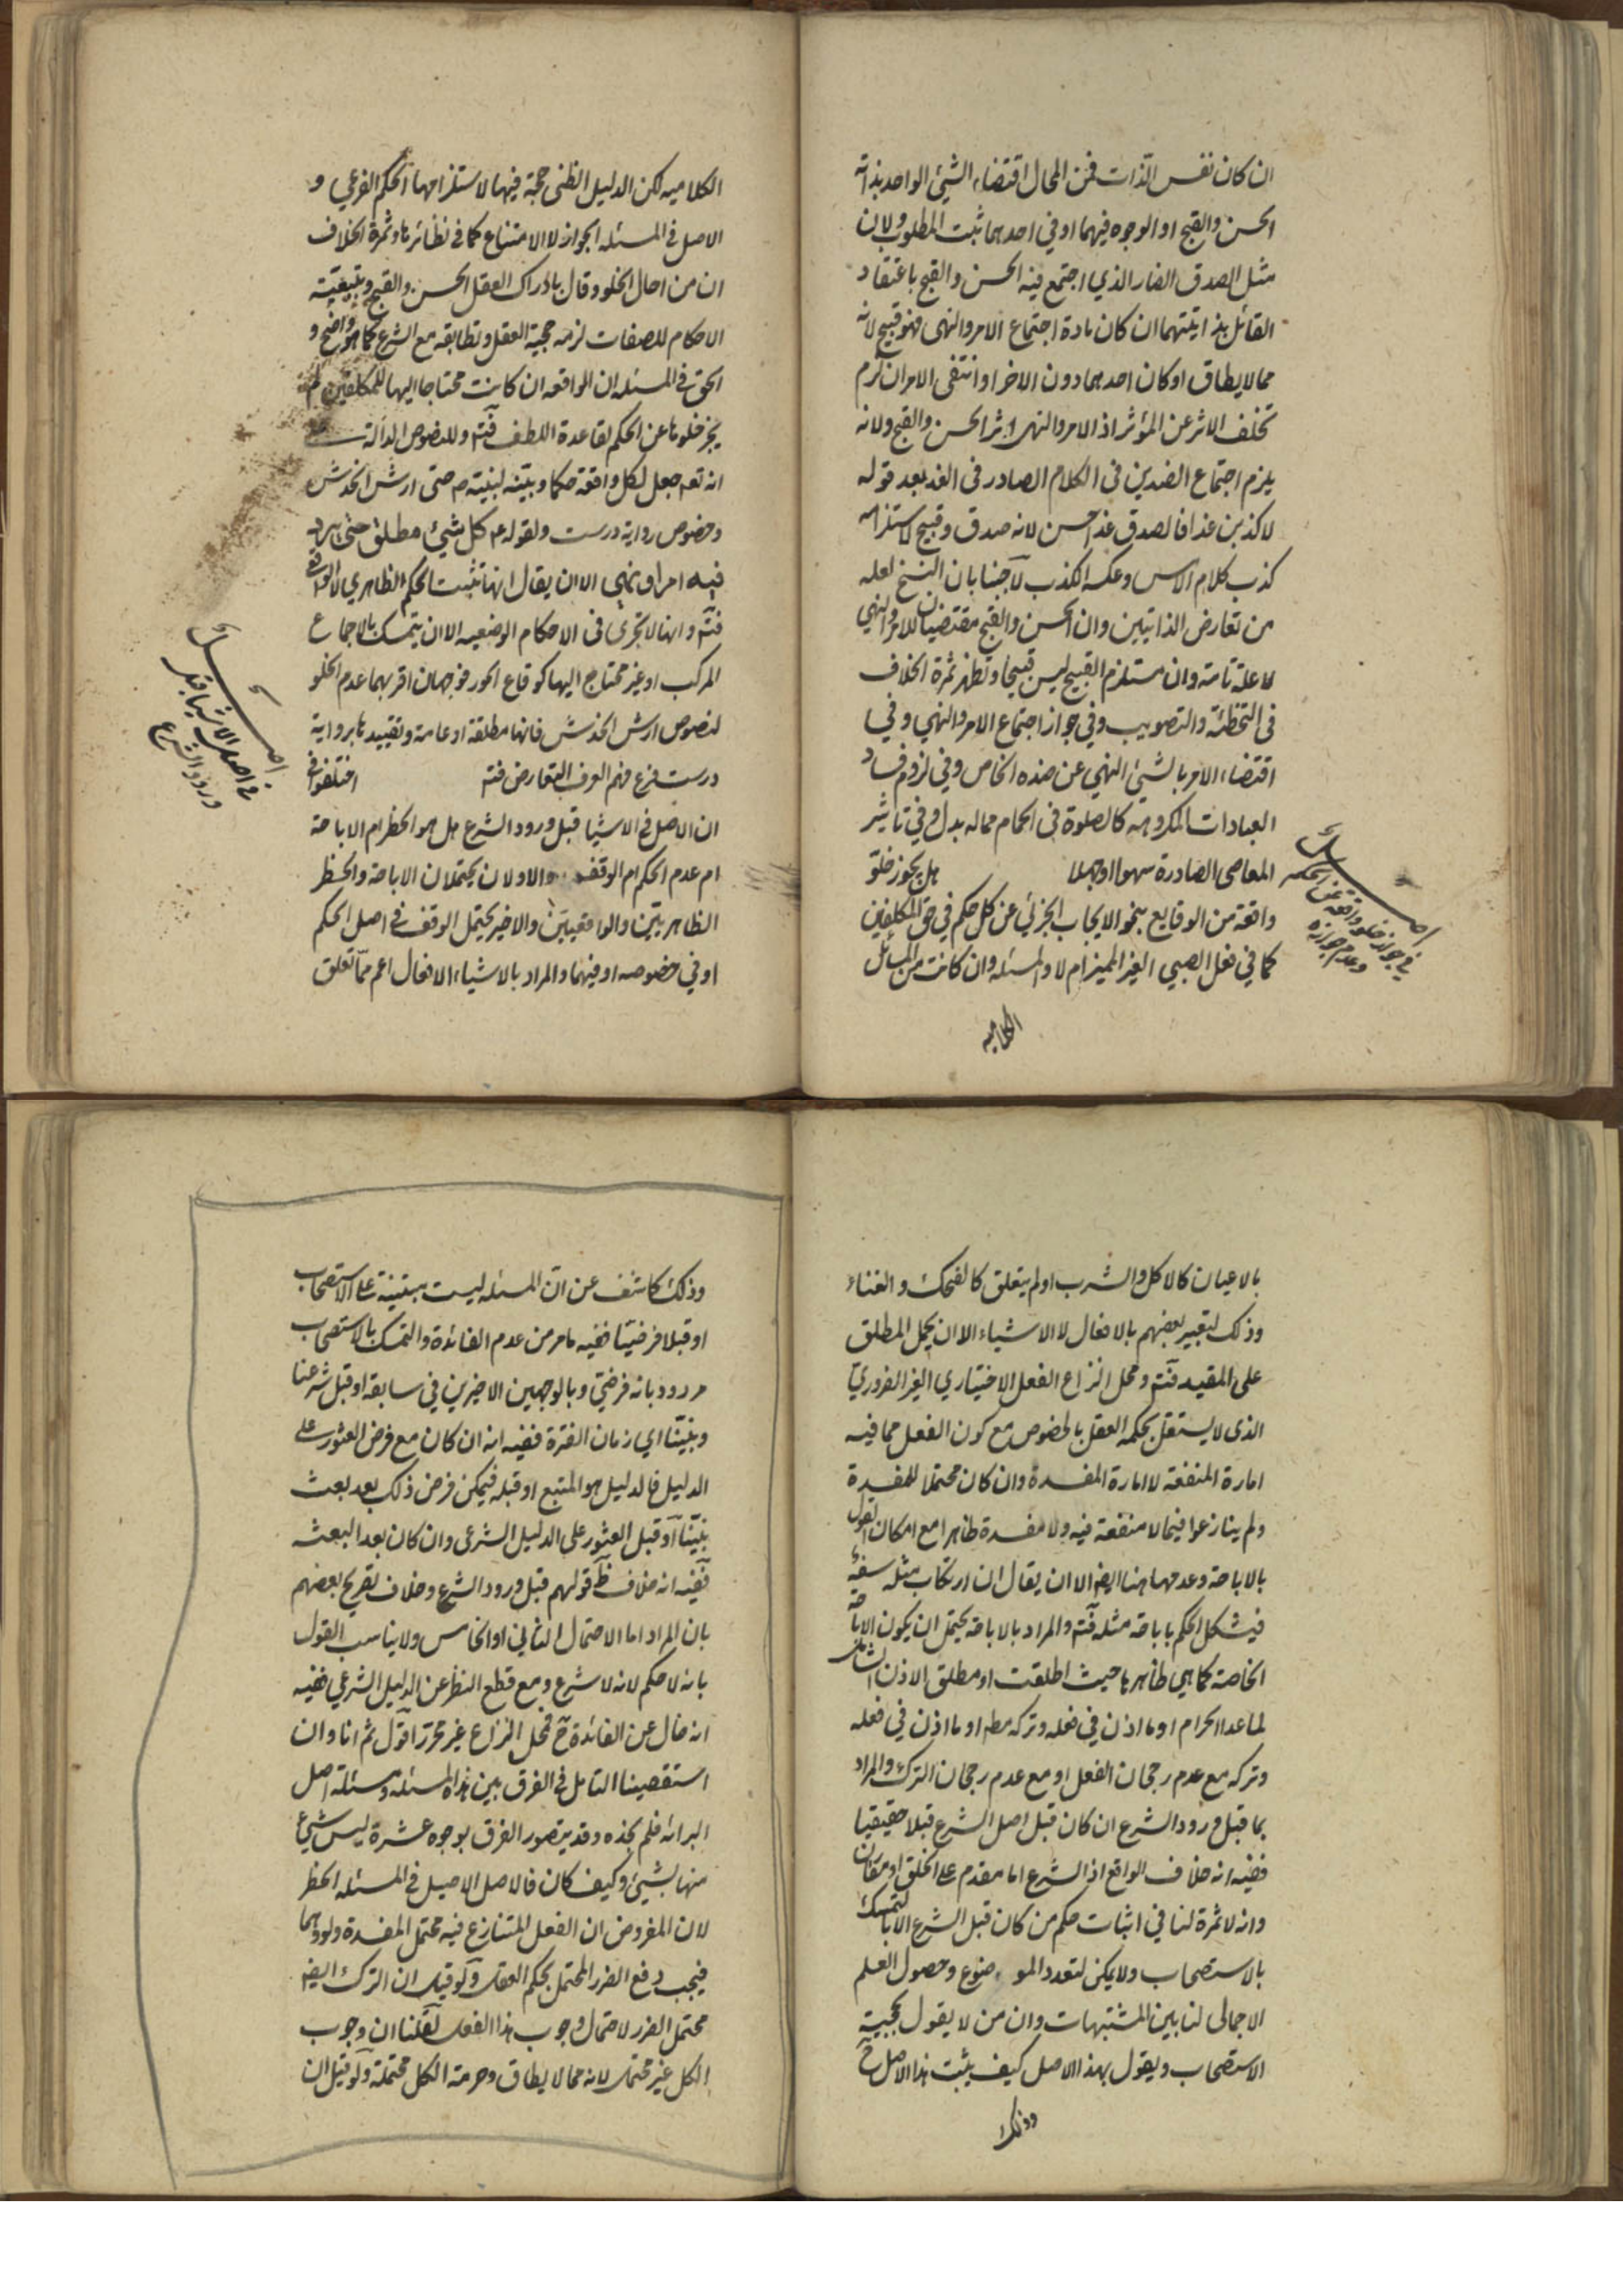 ان كان نفس الذات فمن المحال اقتضاء الشيئ الواحد بذاته
الحسن والقبح او الوجوه فيهما او في احدهما ثبت المطلوب ولان
مثل الصدق الضار الذي اجتمع فيه الحسن والقبح باعتقاد
القائل بذاتيتهما ان كان مادة اجتماع الامر والنهى فهو قبيح لانه
مما لا يطاق او كان احدهما دون الاخر او انتفى الامران لزم
تخلف الاثر عن المؤثر اذ الامر والنهى اثر الحسن والقبح ولانه
يلزم اجتماع الضدين فى الكلام الصادر فى الغد بعد قوله
لاكذبن غدا فالصدق غدا حسن لانه صدق وقبيح لاستلزامه
كذب كلام الامس وعكسه الكذب لاجبنا بان النسخ لعله
من تعارض الذاتيين وان الحسن والقبح مقتضيان للامر والنهي
لا علة تامة وان مستلزم القبيح ليس قبيحا وتظهر ثمرة الخلاف
فى التخطئة والتصويب وفي جواز اجتماع الامر والنهي وفي
اقتضاء الامر بالشيئ النهي عن ضده الخاص وفي لزوم فساد
العبادات المكروهة كالصلوة فى الحمام مماله بدل وفي تاثير
المعاصى الصادرة سهوا او جهلا هل يجوز خلو
واقعة من الوقايع بنحو الايجاب الجزئي عن كل حكم في حق المكلفين
كما في فعل الصبي الغير المميز ام لا والمسئلة وان كانت من المسائل
الكلاميه
اصل
في جواز خلو واقعة عن الحكم
وعدم جوازه
الكلاميه لكن الدليل الظني حجة فيها لاستلزامها الحكم الفرعي و
الاصل فى المسئله الجواز لا الامتناع كما في نظائرها وثمرة الخلاف
ان من احال الخلو وقال بادراك العقل الحسن والقبح وبتبعية
الاحكام للصفات لزمه حجية العقل وتطابقه مع الشرع كما هو واضح و
الحق فى المسئله ان الواقعه ان كانت محتاجا اليها للمكلفين لم
يجز خلوها عن الحكم لقاعدة اللطف فتم وللنصوص الدالة على
انه تعه جعل لكل واقعة حكما وبينه لنبيه ص حتى ارش الخدش
وخصوص رواية درست ولقوله ع كل شيئ مطلق حتى يرد
فيه امر او نهي الا ان يقال انها تثبت الحكم الظاهري لا الواقعي
فتم وانها لا تجرى فى الاحكام الوضعيه الا ان يتمسك بالاجماع
المركب او غير محتاج اليها كوقاع الحور فوجهان اقربهما عدم الخلو
لنصوص ارش الخدش فانها مطلقة او عامة وتقييدها برواية
درست فرع فهم العرف التعارض فته اختلفوا فى
ان الاصل فى الاشيا قبل ورود الشرع هل هو الحظر ام الاباحة
ام عدم الحكم ام الوقف والاولان يحتملان الاباحة والحظر
الظاهريتين والواقعيتين والاخير يحتمل الوقف فى اصل الحكم
او في خصوصه او فيهما والمراد بالاشياء الافعال اعم مما تعلق
اصل
في اصل الاشيا قبل
ورود الشرع
بالاعيان كالاكل والشرب او لم يتعلق كالضحك والغناء
وذلك لتعبير بعضهم بالافعال لا الاشياء الا ان يحمل المطلق
على المقيد فتم ومحل النزاع الفعل الاختياري الغير الضروري
الذى لا يستقل بحكمه العقل بالخصوص مع كون الفعل مما فيه
امارة المنفعة لا امارة المفسدة وان كان محتملا للمفسدة
ولم ينازعوا فيما لا منفعة فيه ولا مفسدة ظاهرا مع امكان القول
بالاباحة وعدمها هنا ايضا الا ان يقال ان ارتكاب مثله سفه
فيشكل الحكم باباحة مثله فتم والمراد بالاباحة يحتمل ان يكون الاباحة
الخاصة كما هي ظاهرها حيث اطلقت او مطلق الاذن الشامل
لما عدا الحرام او ما اذن في فعله وتركه مطه او ما اذن في فعله
وتركه مع عدم رجحان الفعل او مع عدم رجحان الترك والمراد
بما قبل ورود الشرع ان كان قبل اصل الشرع قبلا حقيقيا
ففيه انه خلاف الواقع اذ الشرع اما مقدم على الخلق او مقارن
وانه لا ثمرة لنا في اثبات حكم من كان قبل الشرع الا بالتمسك
بالاستصحاب ولا يمكن لتعدد الموضوع وحصول العلم
الاجمالى لنا بين المشتبهات وان من لا يقول بحجية
الاستصحاب ويقول بهذا الاصل كيف يثبت هذا الاصل ح
وذلك
وذلك كاشف عن ان المسئله ليست مبتنية على الاستصحاب
او قبلا فرضيا ففيه مامر من عدم الفائدة والتمسك بالاستصحاب
مردود بانه فرضي وبالوجهين الاخيرين في سابقه او قبل شرعنا
ونبينا اي زمان الفترة ففيه انه ان كان مع فرض العثور على
الدليل فالدليل هو المتبع او قبله فيمكن فرض ذلك بعد بعث
نبينا او قبل العثور على الدليل الشرعى وان كان بعد البعث
ففيه انه خلاف ظ قولهم قبل ورود الشرع وخلاف تصريح بعضهم
بان المراد اما الاحتمال الثاني او الخامس ولا يناسب القول
بانه لا حكم لانه لا شرع ومع قطع النظر عن الدليل الشرعي ففيه
انه خال عن الفائدة ح فمحل النزاع غير محرر اقول ثم انا وان
استقصينا التامل فى الفرق بين هذه المسئله ومسئلة اصل
البرائه فلم نجده وقد يتصور الفرق بوجوه عشرة ليس شيئ
منها بشيئ وكيف كان فالاصل الاصيل فى المسئله الحظر
لان المفروض ان الفعل المتنازع فيه محتمل المفسدة ولو وهما
فيجب دفع الضرر المحتمل بحكم العقل ولو قيل ان الترك ايضا
محتمل الضرر لاحتمال وجوب هذا الفعل لقلنا ان وجوب
الكل غير محتمل لانه مما لا يطاق وحرمة الكل محتملة ولو قيل ان